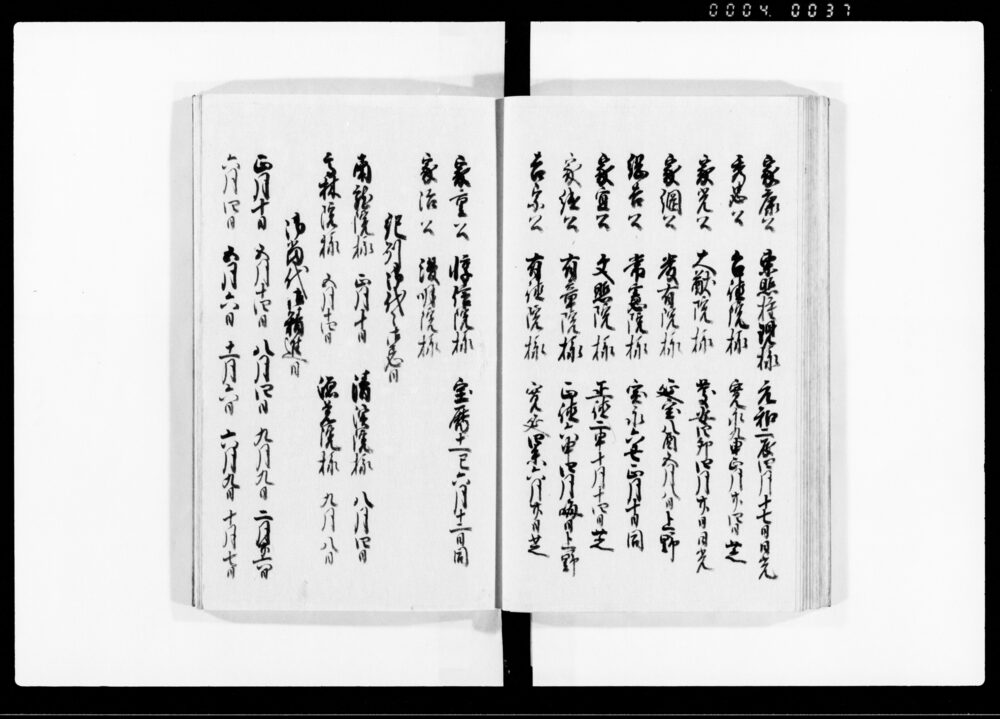 0004 0037
家康公 東照権現様 元和二辰四月十七日日光
秀忠公 台徳院様 寛永九申正月廿四日芝
家光公 大猷院様 慶安四卯四月廿日日光
家綱公 厳有院様 延宝八申五月八日上野
綱吉公 常憲院様 宝永六丑正月十日同
家宣公 文昭院様 正徳二 十月十四日芝
家継公 有章院様 正徳六申四月晦日
吉宗公 有徳院様 寛延四未六月廿日芝
家重公 惇信院様 宝暦十一巳六月十二日同
家治公 浚明院様
紀州御代々御忌日
南龍院様 正月十日 清渓院様 八月四日
高林院様 五月十四日 深覚院様 九月八日
御当代御精進日
正月十日 五月十四日 八月四日 九月九日
六月四日 五月六日 十一月六日 六月九日 十月七日